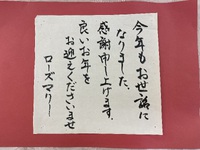 今年もお世話に
なりました、
感謝申し上げます。
良いお年を
お迎えくださいませ
ローズマリー